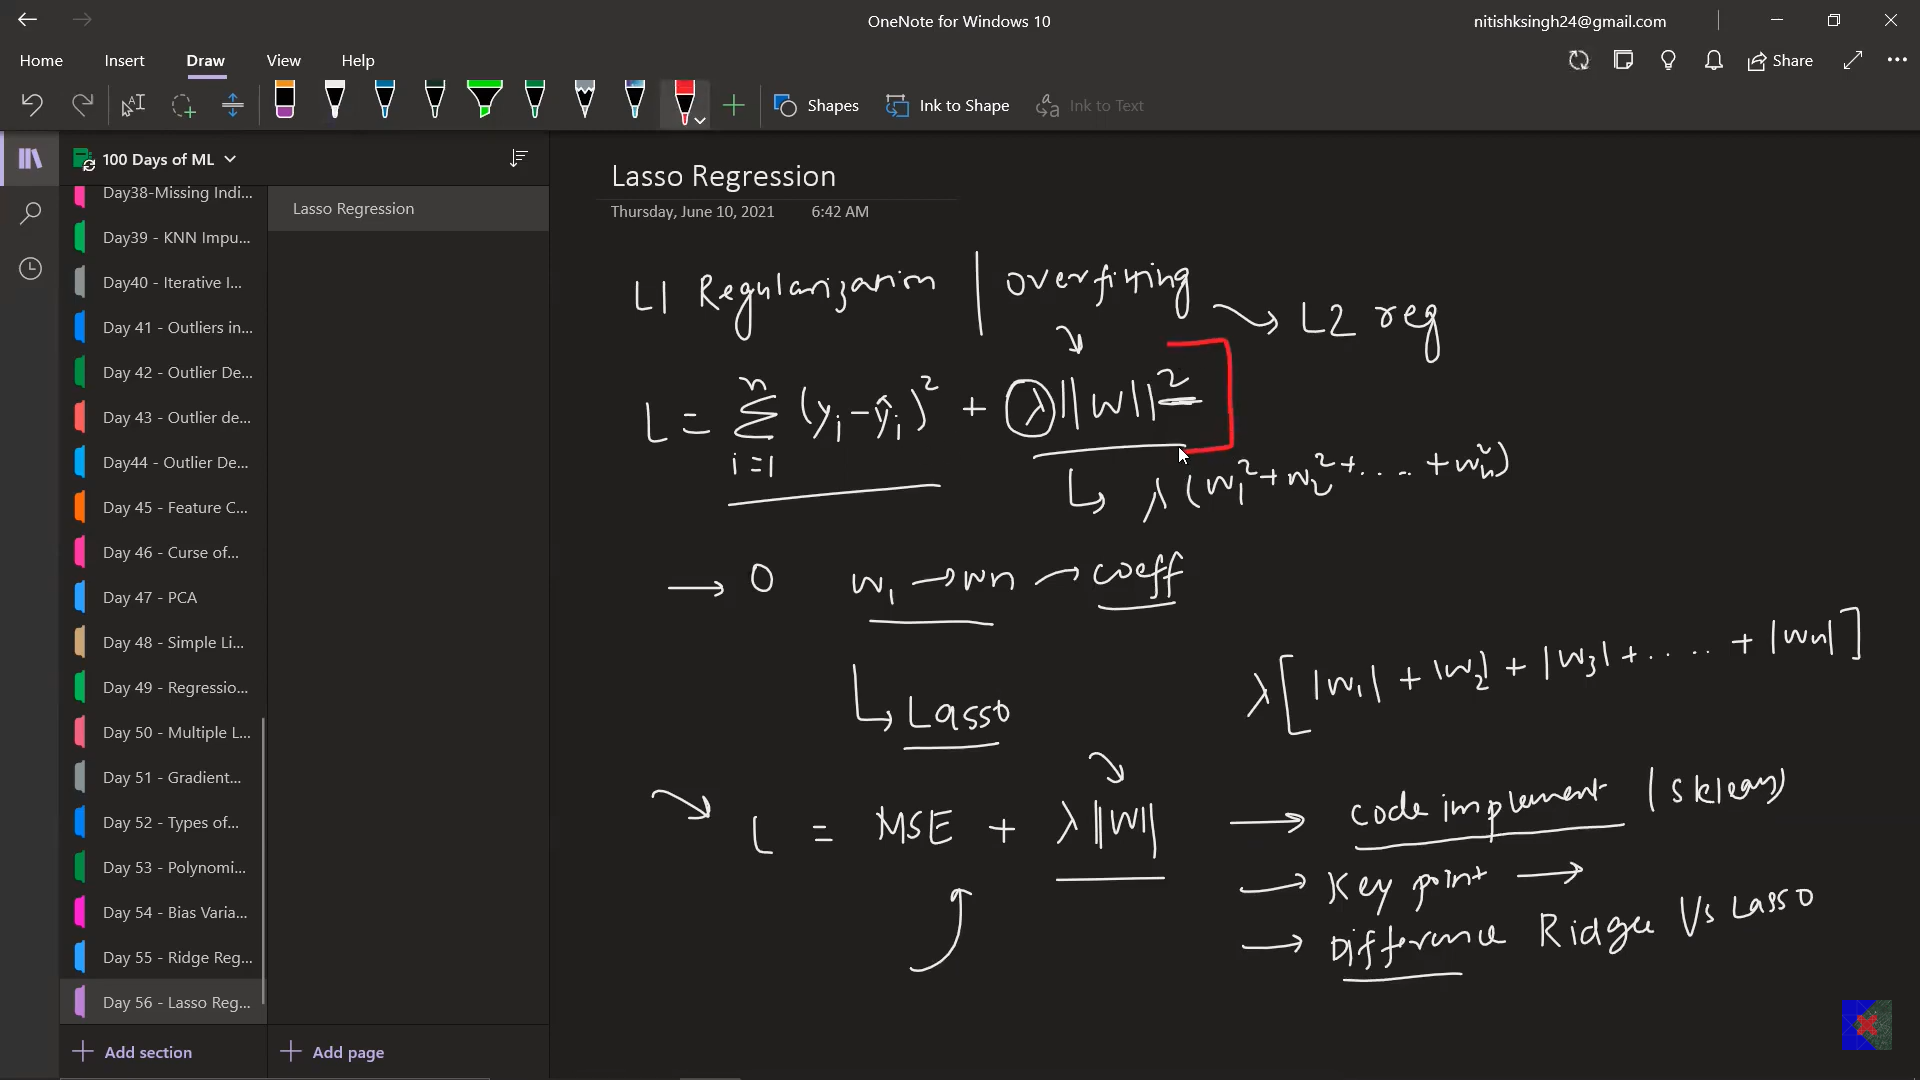 OneNote for Windows 10
nitishksingh24@gmail.com
Home Insert Draw View Help
Share
Shapes Ink to Shape Ink to Text
100 Days of ML
Day38-Missing Indi...
Day39 - KNN Impu...
Day40 - Iterative I...
Day 41 - Outliers in...
Day 42 - Outlier De...
Day 43 - Outlier de...
Day44 - Outlier De...
Day 45 - Feature C...
Day 46 - Curse of...
Day 47 - PCA
Day 48 - Simple Li...
Day 49 - Regressio...
Day 50 - Multiple L...
Day 51 - Gradient...
Day 52 - Types of...
Day 53 - Polynomi...
Day 54 - Bias Varia...
Day 55 - Ridge Reg...
Day 56 - Lasso Reg...
Add section
Lasso Regression
Add page
Lasso Regression
Thursday, June 10, 2021 6:42 AM
L1 Regularization | overfitting → L2 reg
L = Σ_{i=1}^{n} (y_i - ŷ_i)² + λ||W||²
↳ λ (w₁² + w₂² + .... + w_n²)
→ 0 w₁ → wn → coeff
↳ Lasso
λ [|w₁| + |w₂| + |w₃| + ..... + |wn|]
L = MSE + λ ||W||
→ code implement (sklearn)
→ Key point →
→ Difference Ridge Vs Lasso